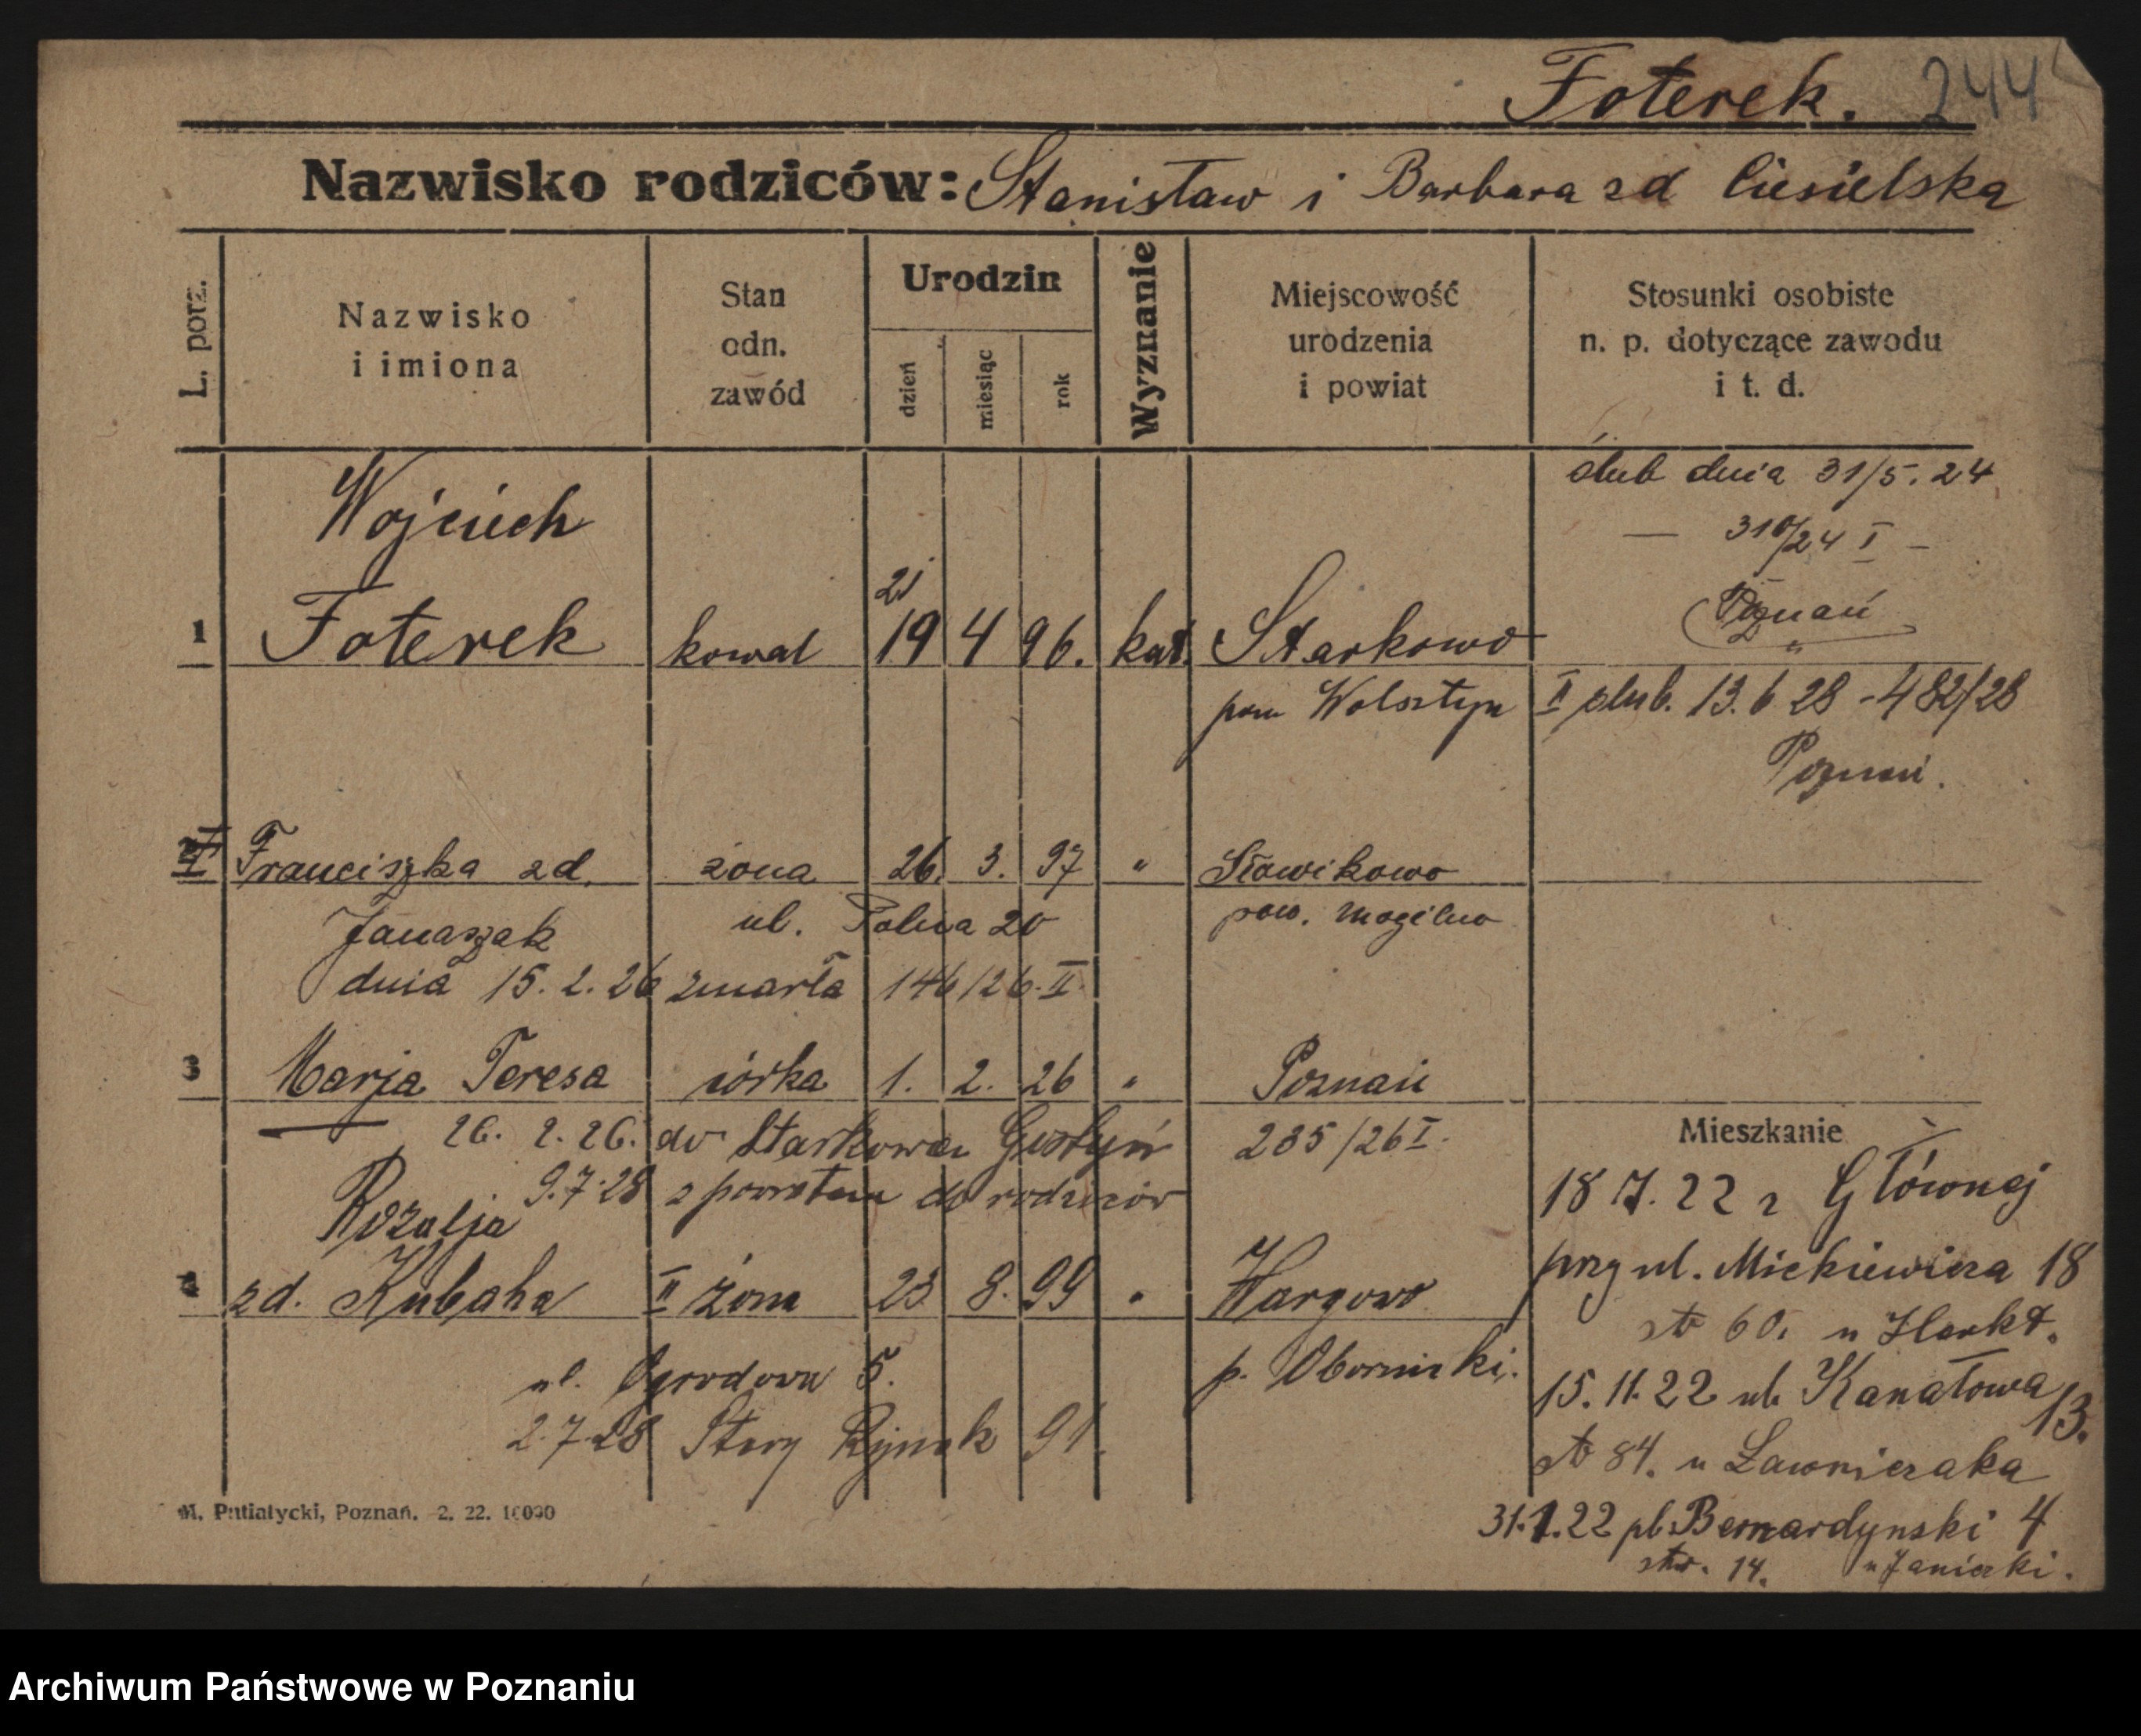 Foterek. 244
Nazwisko rodziców: Stanisław i Barbara zd Ciesielska
L. porz.
Nazwisko
i imiona
Stan
odn.
zawód
Urodzin
dzień
miesiąc
rok
Wyznanie
Miejscowość
urodzenia
i powiat
Stosunki osobiste
n. p. dotyczące zawodu
i t. d.
ślub dnia 31/5. 24
Wojciech
— 310/24 I –
21
Poznań
1 Foterek kowal 19 4 96. kat. Starkowo
pow Wolsztyn II ślub. 13. 6 28 - 482/28
Poznań.
II Franciszka zd. żona 26. 3. 97 " Sławikowo
Janaszak ul. Polna 20 pow. Mogilno
dnia 15. 2. 26 zmarła 146/26. II
3 Marja Teresa córka 1. 2. 26 " Poznań
26. 2. 26. do Starkowa Gostyń 235/26 I.
Mieszkanie
9. 7. 28 z powrotem do rodziców
18 7. 22 z Głównej
Rozalja
4 zd. Kubaha II żona 23 8. 99 " Wargowo
przy ul. Mickiewicza 18
str 60.
ul. Ogrodowa 5. p. Oborniki.
15. 11. 22 ul. Kanałowa 13.
2. 7. 28 Stary Rynek 91.
str 84. u Ławniczaka
M. Putiatycki, Poznań. 2. 22. 10000
31. 1. 22 pl. Bernardynski 4
str. 14. u Janiczki.
Archiwum Państwowe w Poznaniu